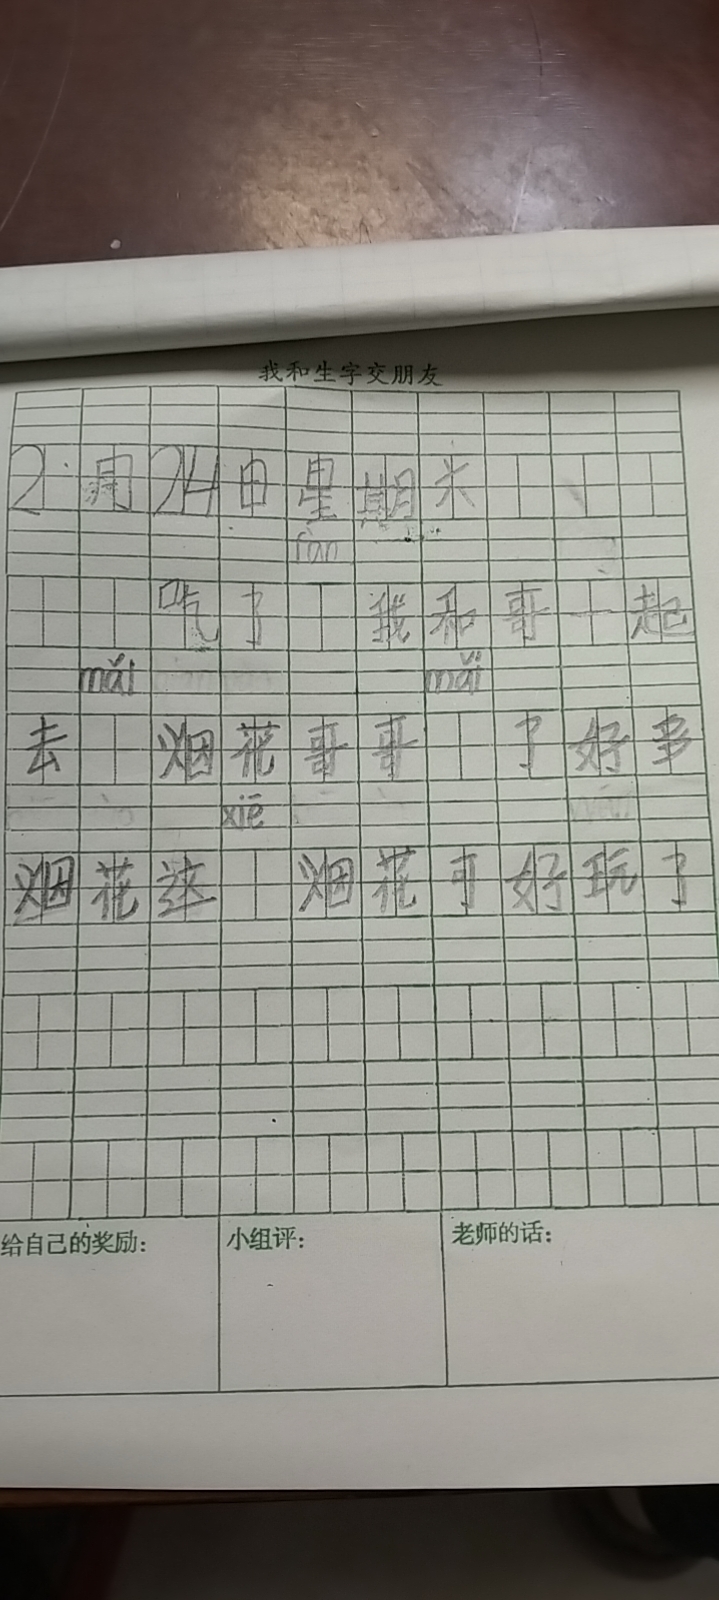 我和生字交朋友
2月24日星期六
fàn
吃了 我和哥一起
mǎi mǎi
去 烟花哥哥 了好多
xiē
烟花这 烟花可好玩了
给自己的奖励： 小组评： 老师的话：